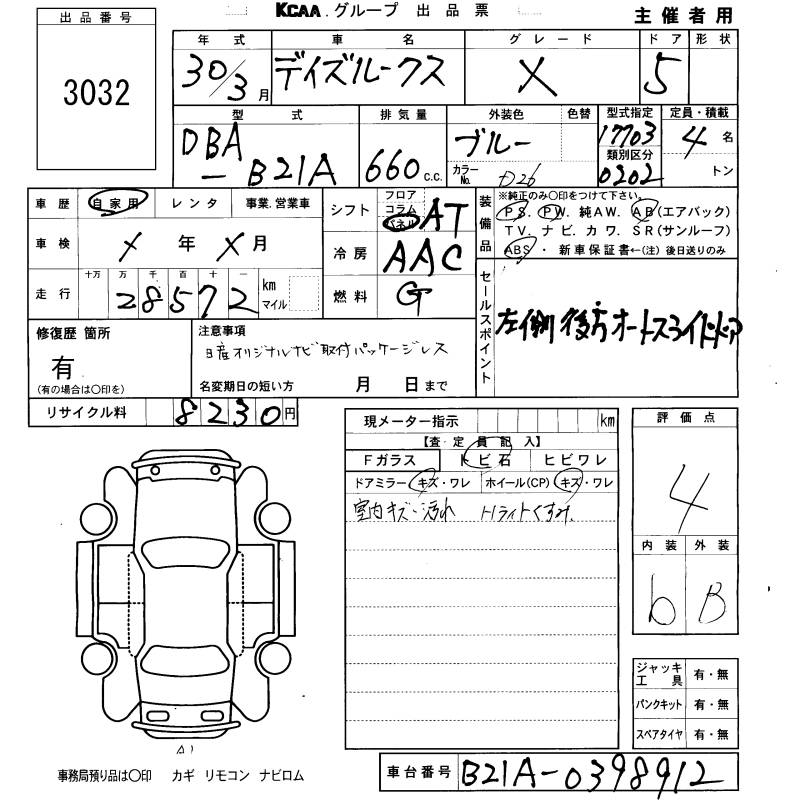 KCAA.グループ 出品票
主催者用
出品番号
3032
年式 車名 グレード ドア 形状
30/3月 デイズルークス X 5
型式 排気量 外装色 色替 型式指定 定員・積載
DBA-B21A 660 C.C. ブルー 17703 4名
カラーNo. 類別区分 トン
0202
車歴 自家用 レンタ 事業.営業車
シフト フロア コラム パネル AT
装備品 ※純正のみ〇印をつけて下さい。
PS. PW. 純AW. AB(エアバック)
TV. ナビ. カワ. SR(サンルーフ)
ABS ・ 新車保証書←(注)後日送りのみ
車検 X年X月
冷房 AAC
走行 十万 万 千 百 十 一 km マイル
28572
燃料 G
セールスポイント
左側後方オートスライドドア
修復歴 箇所
有
(有の場合は〇印を)
注意事項
日産オリジナルナビ取付パッケージレス
名変期日の短い方 月 日まで
リサイクル料 8230円
現メーター指示 km
【査・定・員・記・入】
Fガラス トビ石 ヒビワレ
ドアミラー キズ・ワレ ホイール(CP) キズ・ワレ
室内キズ・汚れ Hライトくすみ.
評価点
4
内装 外装
b B
ジャッキ工具 有・無
パンクキット 有・無
スペアタイヤ 有・無
A1
事務局預り品は〇印 カギ リモコン ナビロム
車台番号 B21A-0398912